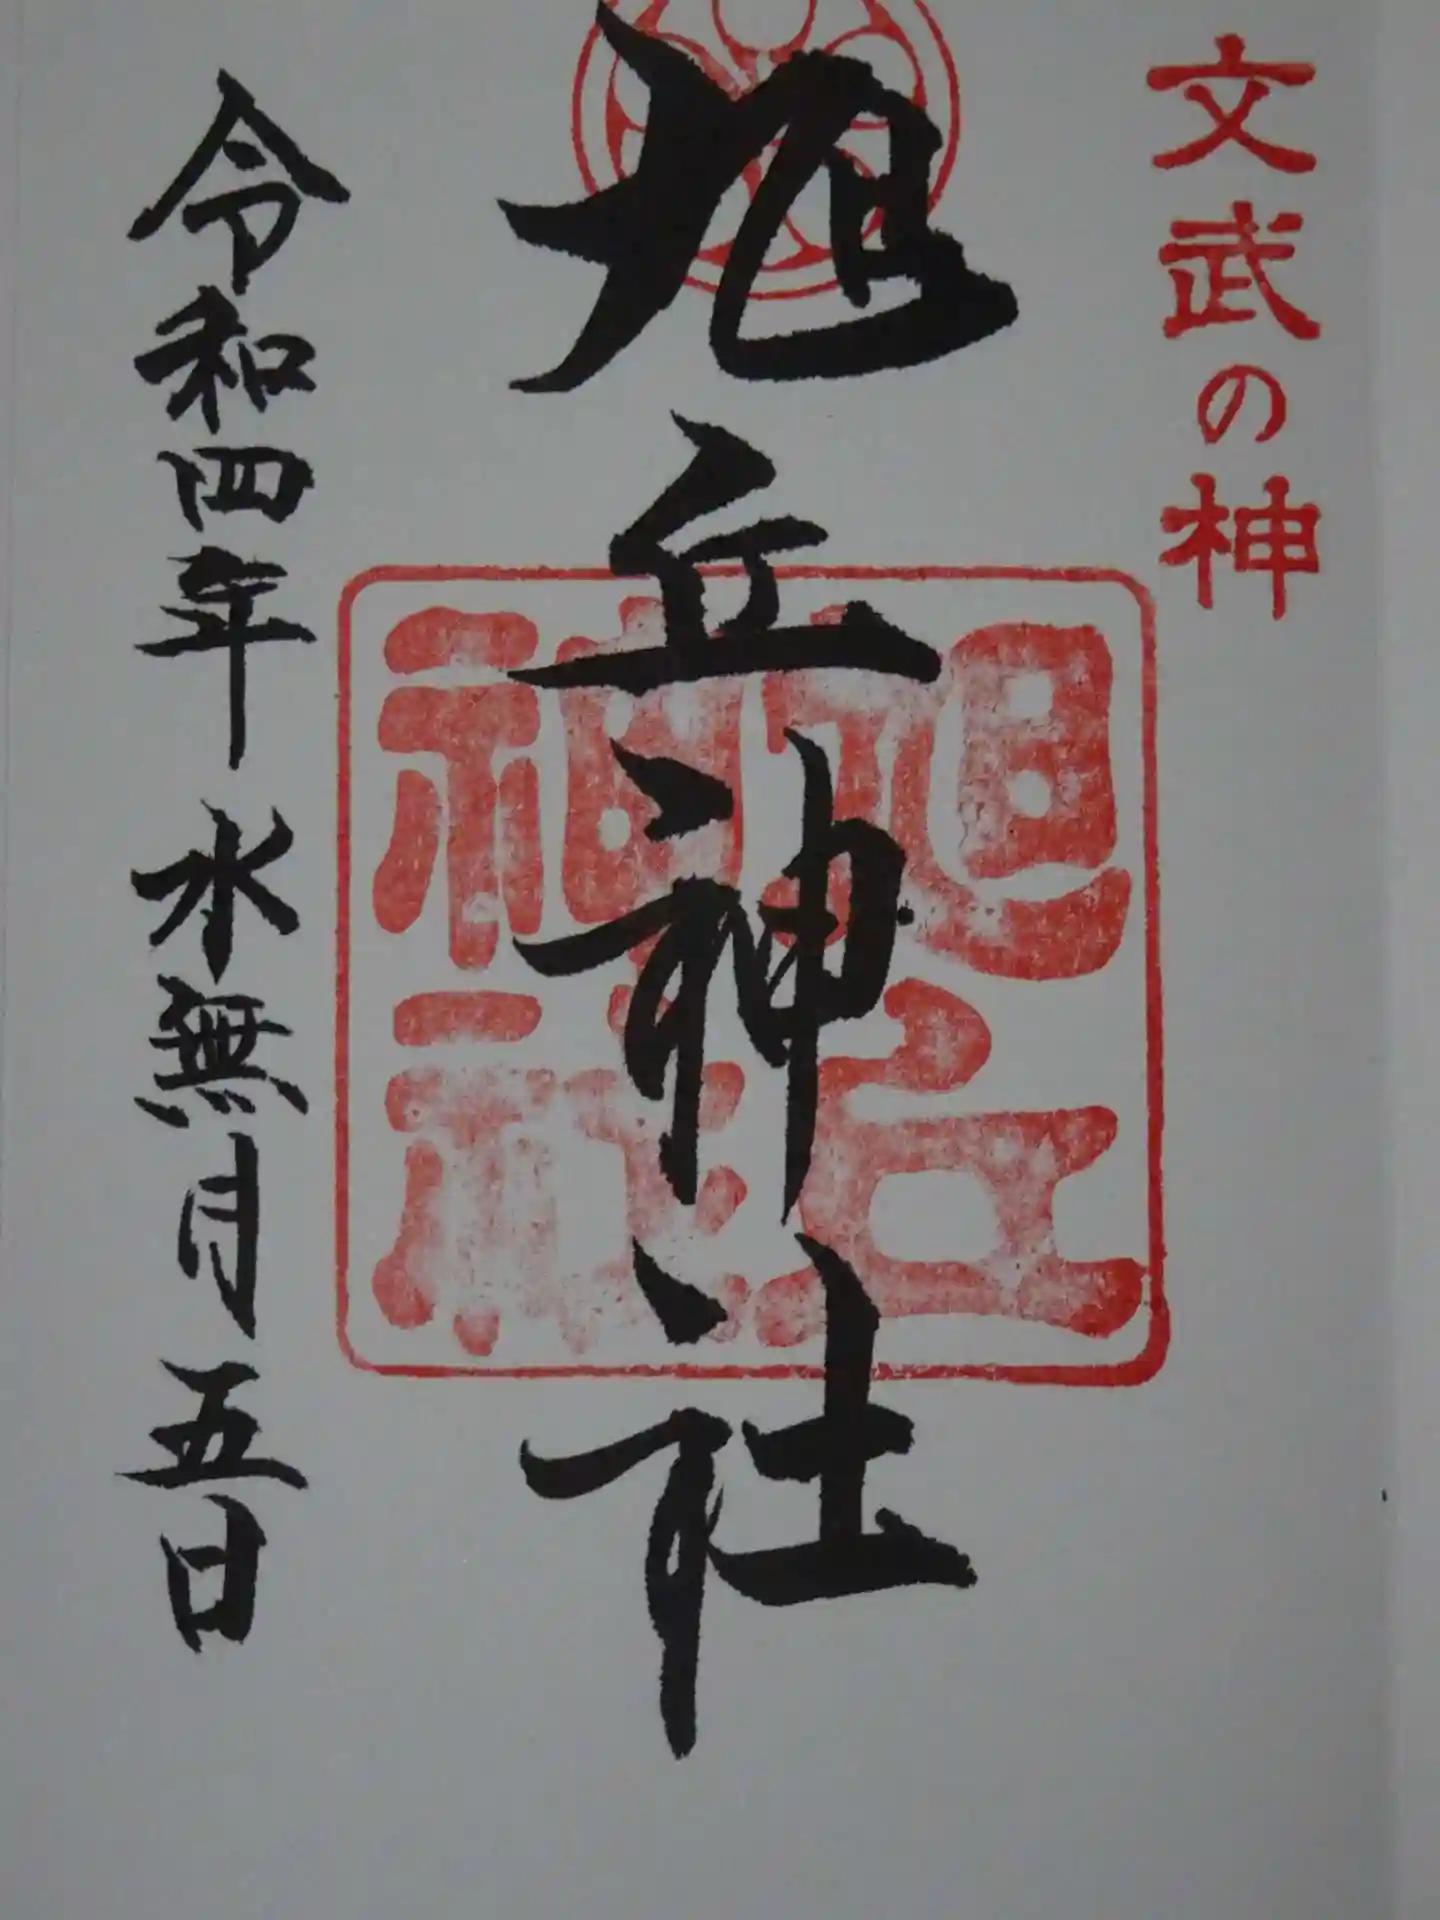 文武の神
旭丘神社
旭丘
神社
令和四年 水無月 五日